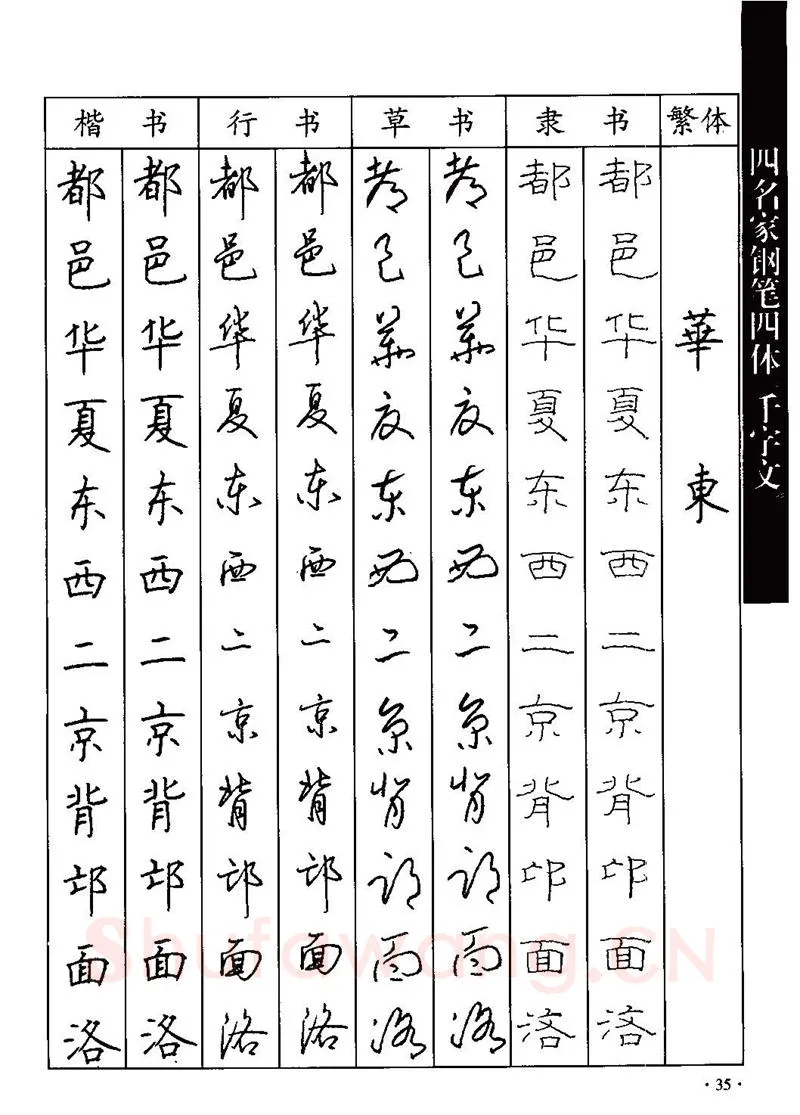 四名家钢笔四体千字文
楷书 行书 草书 隶书 繁体
都邑华夏东西二京背邙面洛
都邑华夏东西二京背邙面洛
都邑华夏东西二京背邙面洛
都邑华夏东西二京背邙面洛
都邑华夏东西二京背邙面洛
都邑华夏东西二京背邙面洛
都邑华夏东西二京背邙面洛
都邑华夏东西二京背邙面洛
華東
Shufawang.CN
·35·